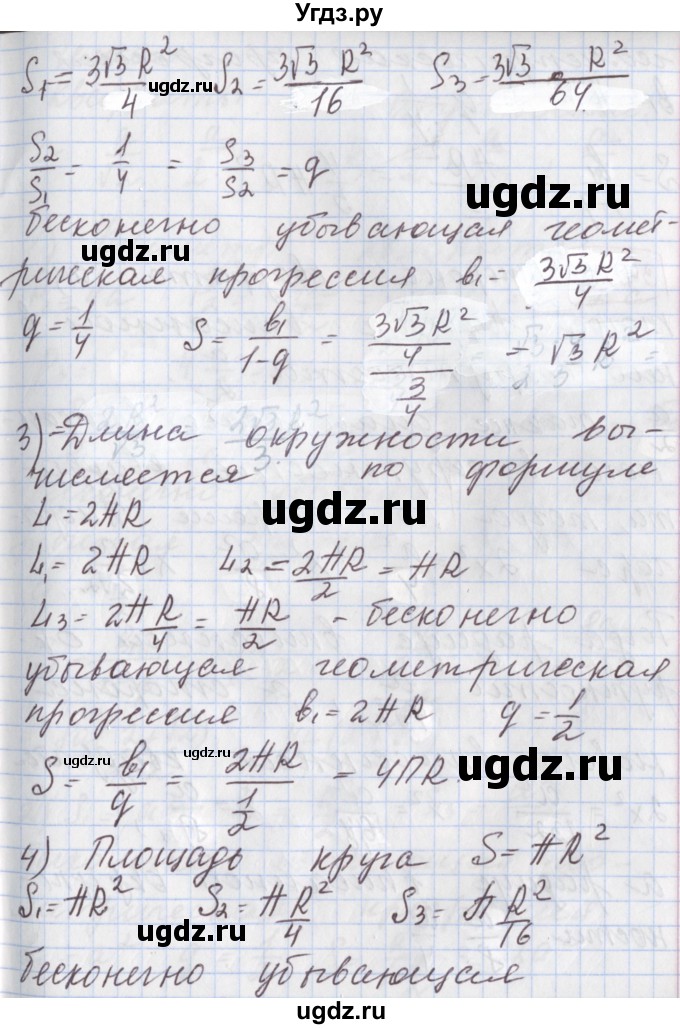 Угдз.ру
S₁ = 3√3 R²/4 S₂ = 3√3 R²/16 S₃ = 3√3 · R²/64
ugdz.ru ugdz.ru
S₂/S₁ = 1/4 = S₃/S₂ = q
ugdz.ru
бесконечно убывающая геомет-
ugdz.ru
рическая прогрессия b₁ = 3√3 R²/4
q = 1/4 S = b₁/(1-q) = (3√3 R²/4)/(3/4) = √3 R²
3) Длина окружности вы-
числяется по формуле
L = 2πR
ugdz.ru
L₁ = 2πR L₂ = 2πR/2 = πR
L₃ = 2πR/4 = πR/2 - бесконечно
убывающая геометрическая
прогрессия b₁ = 2πR q = 1/2
ugdz.ru ugdz.ru ugdz.ru
S = b₁/q = 2πR/(1/2) = 4ПR
4) Площадь круга S = πR²
S₁ = πR² S₂ = πR²/4 S₃ = πR²/16
ugdz.ru
бесконечно убывающая
ugdz.ru